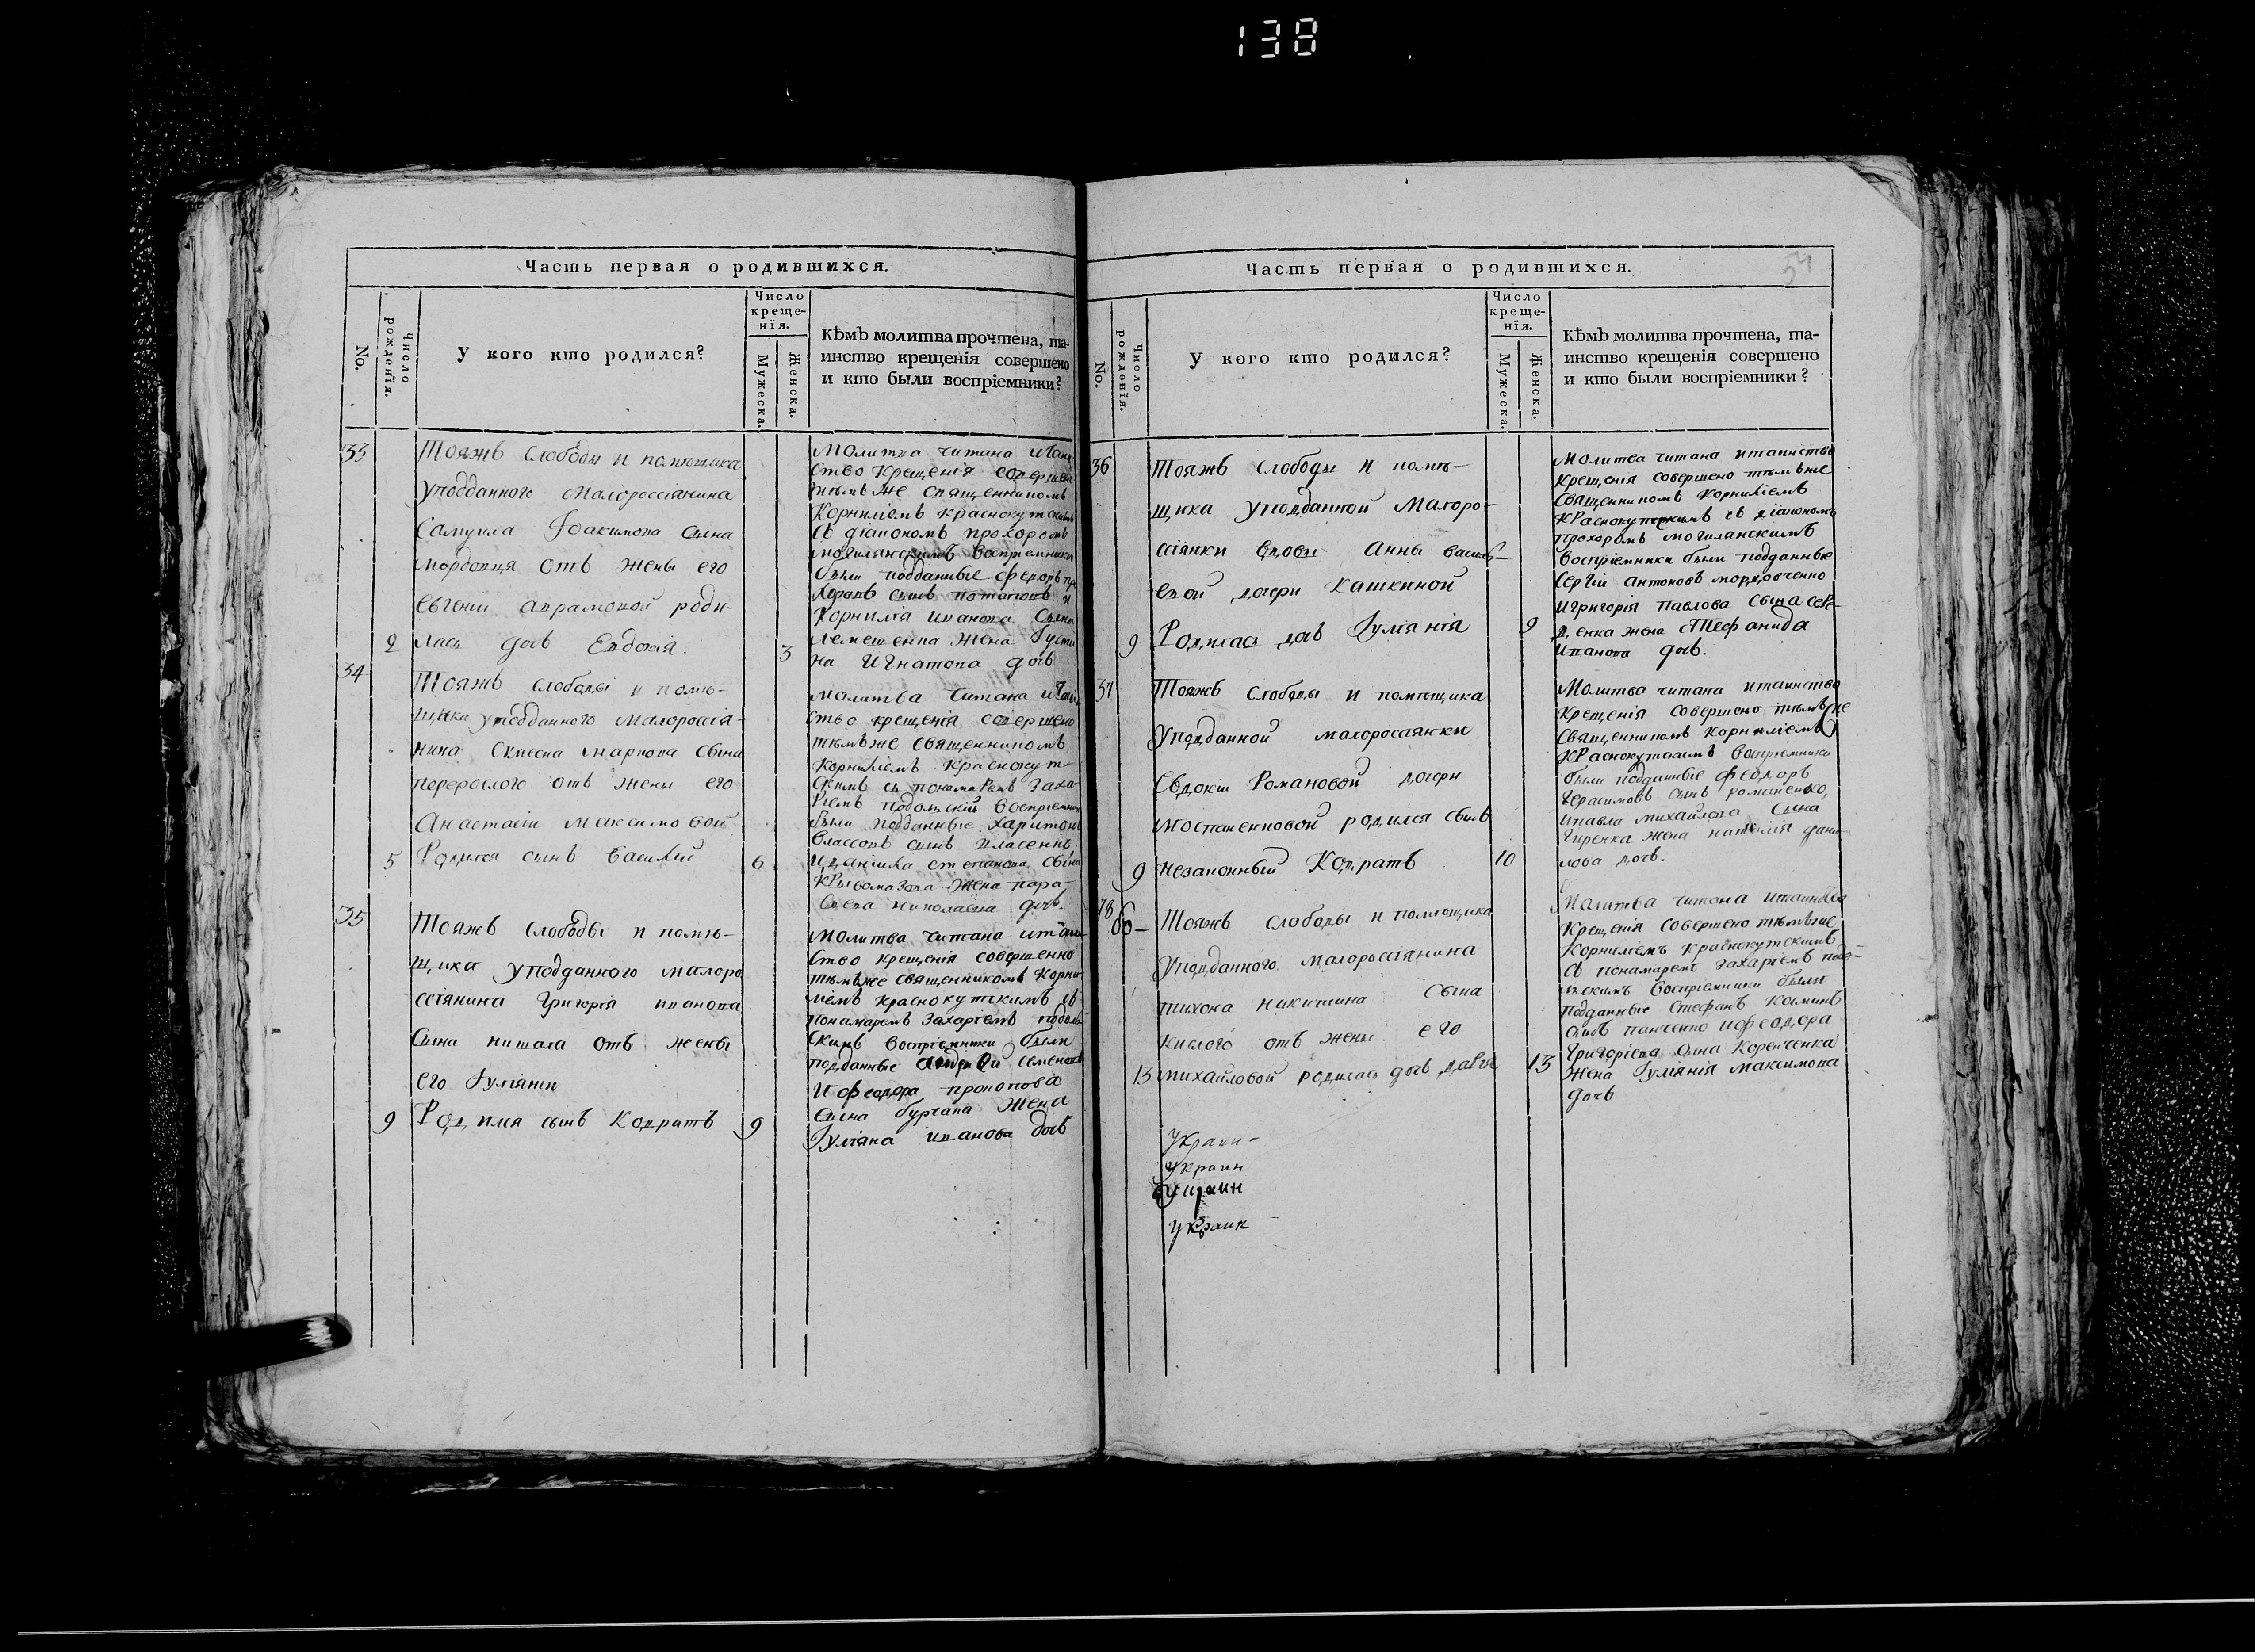 138
Часть первая о родившихся.
No.
Число рожденїя.
У кого кто родился?
Число крещенїя.
Мужеска.
Женска.
Кѣмъ молитва прочтена, та-
инство крещенія совершено
и кто были воспріемники?
33
Тояжъ слободы и помѣщика
уподданного малороссіянина
Самуила Іоакимова сына
мордовця отъ жены его
Евгеніи аврамовой роди-
2 лась дочь Евдокія. 3
Молитва читана итаин
ство крещенія соверше
тѣмъ же священникомъ
Корниліемъ краснокутскимъ
съ діакономъ прохоромъ
могилянскимъ воспріемники
были подданные
сынъ потаповъ и
Корнилія иванова сына
жена
на Игнатова дочь
34
Тояжъ слободы и помѣ-
щика уподданного малороссія-
нина маркова сына
отъ жены его
Анастасіи максимовой
5 Родился сынъ Василий 6
молитва читана итаин
ство крещенія совершено
тѣмъже священникомъ
корниліемъ краснокут-
скимъ съ понамаремъ Заха-
ріемъ подольскій воспріемники
были подданные харитонъ
Влассовъ сынъ власенк
Иданіила степанова сына
жена пара-
николаева дочь.
35
Тояжъ слободы и помѣ-
щика уподданного малоро
ссіянина Григорія иванова
сына отъ жены
его Іуліяніи
9 Родился сынъ Кодратъ 9
молитва читана итаин-
ство крещенія совершенно
тѣмъже священникомъ корни-
ліемъ краснокутскимъ съ
понамаремъ Захаріемъ подоль-
скимъ воспріемники были
подданные Андрей семеновъ
Ифеодора прокопова
сына жена
Іуліяна иванова дочь
Часть первая о родившихся.
54
No.
Число рожденїя.
У кого кто родился?
Число крещенїя.
Мужеска.
Женска.
Кѣмъ молитва прочтена, та-
инство крещенія совершено
и кто были воспріемники?
36
Тояжъ слободы и помѣ-
щика уподданной малоро-
ссіянки вдовы Анны василь-
евой дочери Кашкиной
9 Родилась дочь Іуліянія 9
Молитва читана итаинство
крещенія совершено тѣмъже
священникомъ корниліемъ
краснокутскимъ съ діакономъ
прохоромъ могилянскимъ
воспріемники были подданные
Сергій антоновъ мордовченко
игригорія павлова сына сере-
денка жена Стефанида
иванова дочь.
37
Тояжъ слободы и помѣщика
уподданной малороссіянки
Евдокіи Романовой дочери
моспаненковой родился сынъ
9 незаконный Кодратъ 10
Молитва читана итаинство
крещенія совершено тѣмъже
священникомъ корниліемъ
краснокутскимъ воспріемники
были подданные феодоръ
герасимовъ сынъ романенко,
ипавла михайлова сына
жена наталія дани-
лова дочь.
Тояжъ слободы и помѣщика
уподданного малороссіянина
тихона никитина сына
кислого отъ жены его
13 михайловой родилась дочь дарія 13
Молитва читана итаинство
крещенія совершено тѣмъже
корниліемъ краснокутскимъ
съ понамаремъ захаріемъ подо-
льскимъ воспріемники были
подданные Стефанъ Косминъ
сынъ панченко ифеодора
григоріева сына
жена Іуліянія максимова
дочь
Украин-
украин
украин
украин